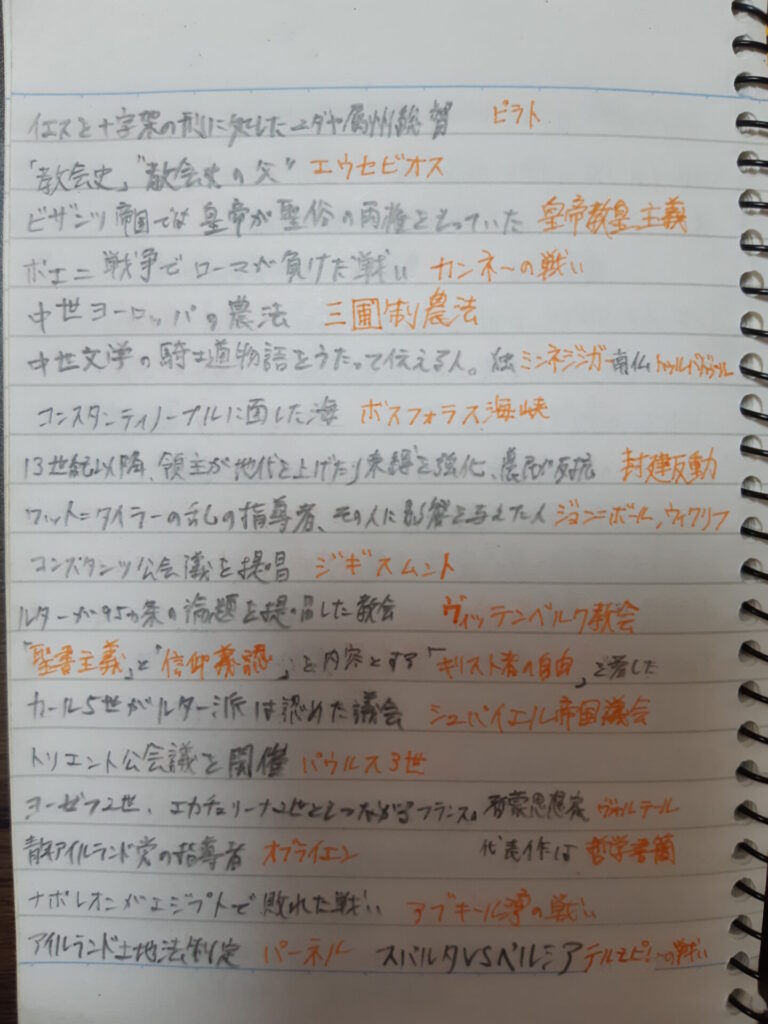 イエスを十字架の刑に処したユダヤ属州総督 ピラト
「教会史」"教会史の父" エウセビオス
ビザンツ帝国では皇帝が聖俗の両権をもっていた 皇帝教皇主義
ポエニ戦争でローマが負けた戦い カンネーの戦い
中世ヨーロッパの農法 三圃制農法
中世文学の騎士道物語をうたって伝える人。独 ミンネジンガー 南仏 トゥルバドゥール
コンスタンティノープルに面した海 ボスフォラス海峡
13世紀以降、領主が地代を上げたり束縛を強化、農民が反抗 封建反動
ワット=タイラーの乱の指導者、その人に影響を与えた人 ジョン=ボール,ウィクリフ
コンスタンツ公会議を提唱 ジギスムント
ルターが95カ条の論題を提唱した教会 ヴィッテンベルク教会
「聖書主義」と「信仰義認」を内容とする「キリスト者の自由」を著した
カール5世がルター派は認めた議会 シュパイエル帝国議会
トリエント公会議を開催 パウルス3世
ヨーゼフ2世、エカチェリーナ2世とつながるフランスの啓蒙思想家 ヴォルテール
青年アイルランド党の指導者 オブライエン 代表作は 哲学書簡
ナポレオンがエジプトで敗れた戦い アブキール湾の戦い
アイルランド土地法制定 パーネル スパルタVSペルシア テルモピレーの戦い